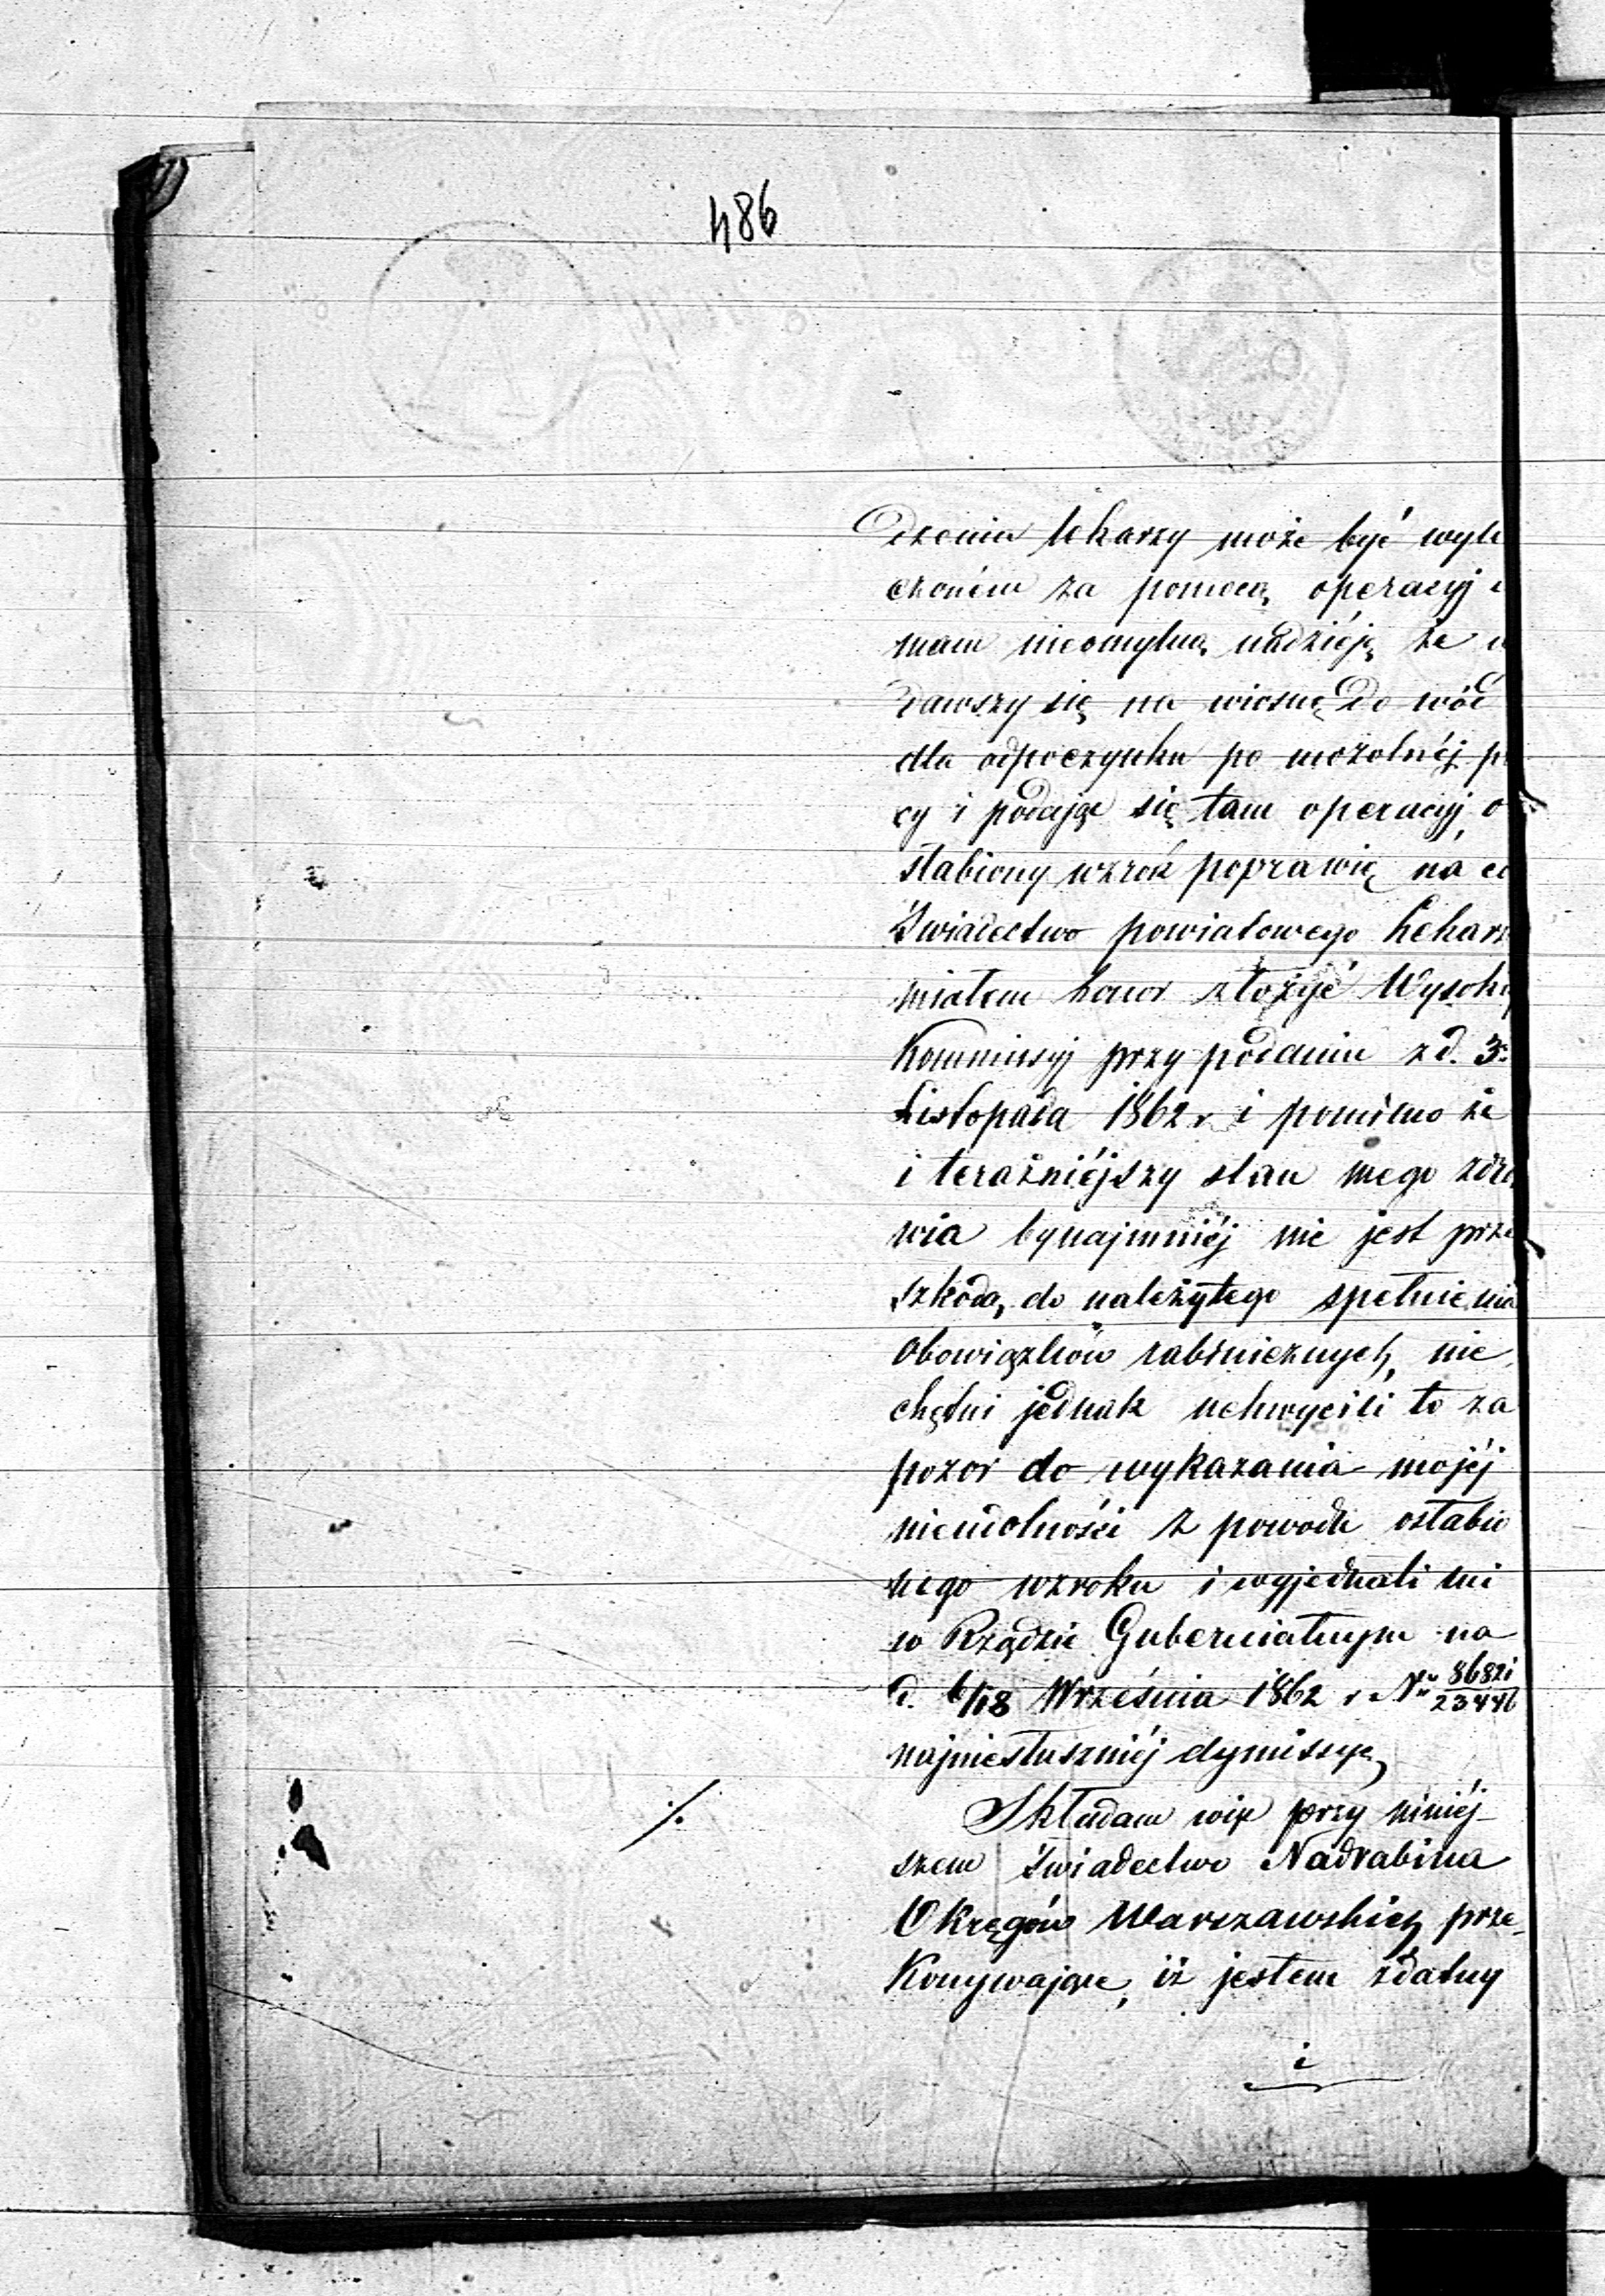 486
dzenia lekarzy może być wyle
czoném za pomocą operacyj i
mam nieomylną nadzieję że u
dawszy się na wiosnę do wód
dla odpoczynku po mozolnéj pr
cy i podając się tam operacyj, o
słabiony wzrok poprawię na co
Świadectwo powiatowego Lekarz
miałem honor złożyć Wysoki
Kommissyj przy podaniu z d. 3
Listopada 1862 r. i pomimo że
i teraźniéjszy stan mego zdro
wia bynajmniéj nie jest prze
szkodą do należytego spełnienia
Obowiązków rabinicznych, nie
chętni jednak uchwycili to za
pozor do wykazania mojéj
nieudolności z powodu osłabio
nego wzroku i wyjednali mi
w Rządzie Gubernialnym na
d. 6/18 Września 1862 r. No 
najniesłuszniéj dymissyę
Składam więc przy niniéj
szem Świadectwo Nadrabina
Okręgów Warszawskich prze
konywające, iż jestem zdatny
i